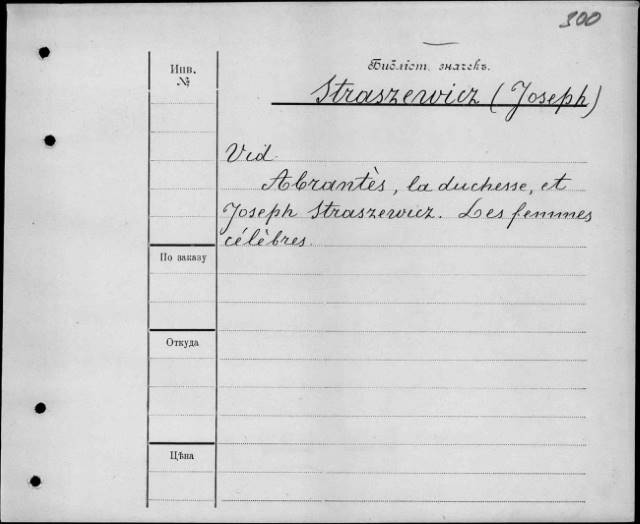 300
Библіот. значекъ.
Инв.
№
Straszewicz (Joseph)
Vid.
Abrantès, la duchesse, et
Joseph Straszewicz. Les femmes
célèbres.
По заказу
Откуда
Цѣна